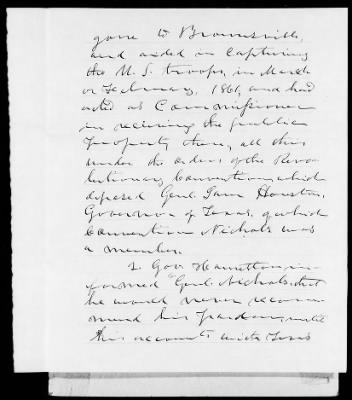 gone to Brownsville,
and aided in Capturing
the U. S. troops, in March
or February, 1861, and had
acted as Commissioner
in receiving the public
property there, all this
under the orders of the Revo-
lutionary Convention, which
deposed Genl. Sam Houston,
Governor of Texas, of which
Convention Nichols was
a member.
2. Gov. Hamilton in-
formed Genl. Nichols, that
he would never recom-
mend his pardon, until
his accounts with Texas